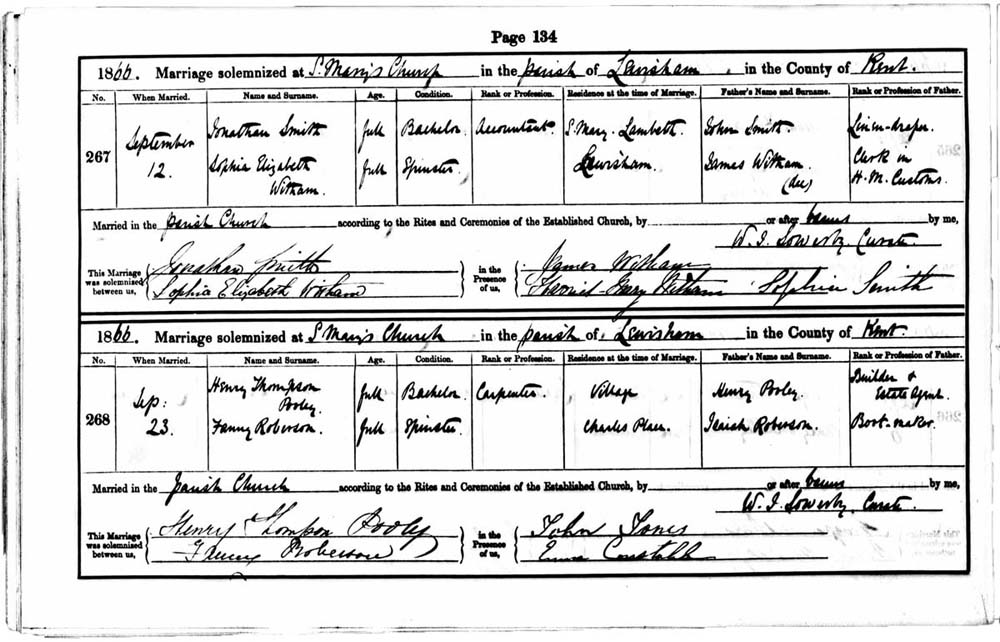 Page 134
1866. Marriage solemnized at S. Mary's Church in the parish of Lewisham. in the County of Kent.
No. When Married. Name and Surname. Age. Condition. Rank or Profession. Residence at the time of Marriage. Father's Name and Surname. Rank or Profession of Father.
267 September 12. Jonathan Smith full Bachelor. Accountant. S. Mary. Lambeth. John Smith. Linen-draper.
Sophia Elizabeth Witham. full Spinster. Lewisham. James Witham. (dec) Clerk in H.M. Customs.
Married in the parish Church according to the Rites and Ceremonies of the Established Church, by or after banns by me,
W. J. Sowerby. Curate.
This Marriage was solemnized between us, Jonathan Smith in the Presence of us, James Witham
Sophia Elizabeth Witham Mary Witham Sophia Smith
1866. Marriage solemnized at S. Mary's Church in the parish of Lewisham in the County of Kent.
No. When Married. Name and Surname. Age. Condition. Rank or Profession. Residence at the time of Marriage. Father's Name and Surname. Rank or Profession of Father.
268 Sep: 23. Henry Thompson Pooley. full Bachelor. Carpenter. Village Henry Pooley. Builder & Estate Agent.
Fanny Roberson. full Spinster. Charles Place. Isaiah Roberson. Boot-maker.
Married in the parish Church according to the Rites and Ceremonies of the Established Church, by or after banns by me,
W. J. Sowerby. Curate.
This Marriage was solemnized between us, Henry Thompson Pooley in the Presence of us, John Jones
Fanny Roberson Emma Constable